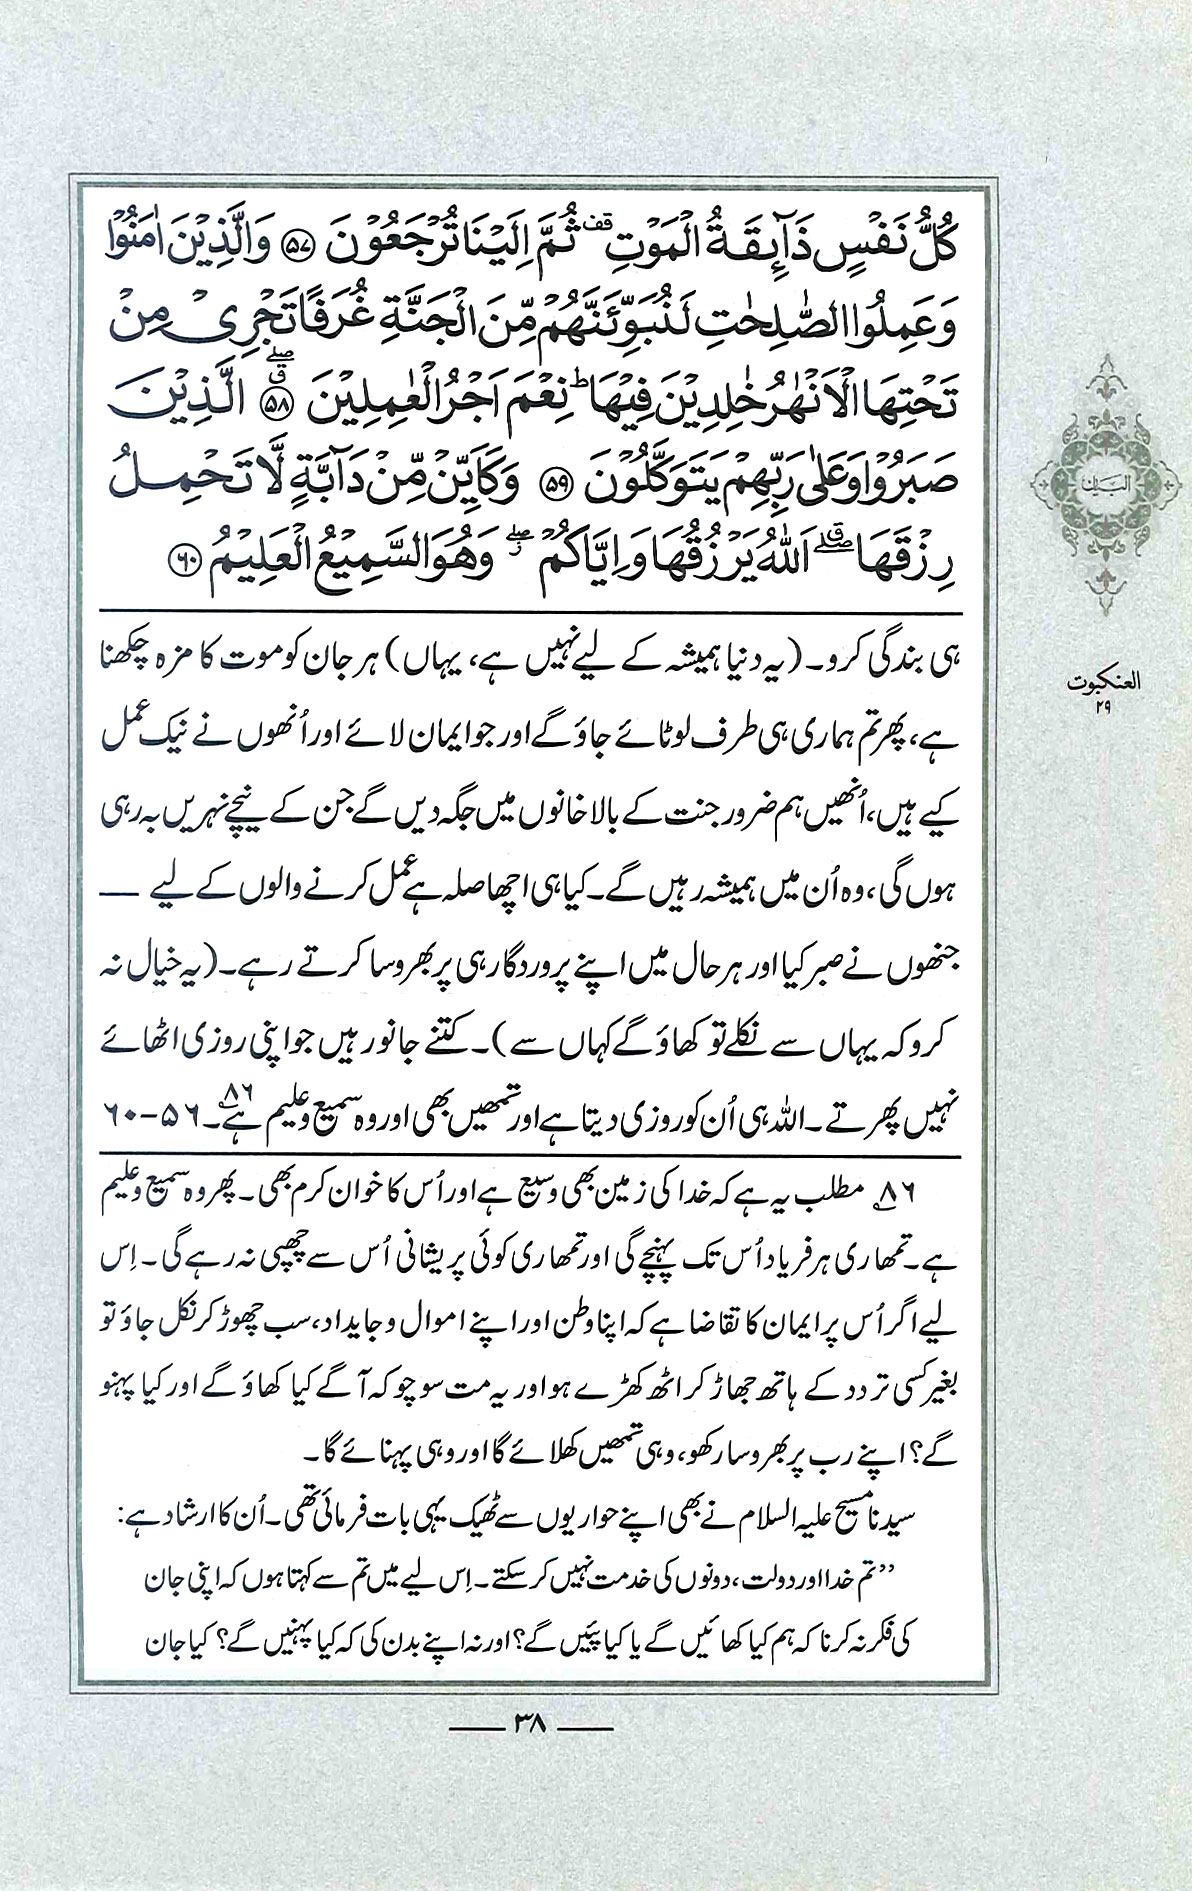 كُلُّ نَفْسٍ ذَآئِقَةُ الْمَوْتِ ۟قف ثُمَّ اِلَيْنَا تُرْجَعُوْنَ ﴿۵۷﴾ وَالَّذِيْنَ اٰمَنُوْا
وَعَمِلُوا الصّٰلِحٰتِ لَنُبَوِّئَنَّهُمْ مِّنَ الْجَنَّةِ غُرَفًا تَجْرِيْ مِنْ
تَحْتِهَا الْاَنْهٰرُ خٰلِدِيْنَ فِيْهَا ؕ نِعْمَ اَجْرُ الْعٰمِلِيْنَ ﴿۵۸﴾ۖق الَّذِيْنَ
صَبَرُوْا وَعَلٰى رَبِّهِمْ يَتَوَكَّلُوْنَ ﴿۵۹﴾ وَكَاَيِّنْ مِّنْ دَآبَّةٍ لَّا تَحْمِلُ
رِزْقَهَا ۖق اَللّٰهُ يَرْزُقُهَا وَاِيَّاكُمْ ۖز وَهُوَ السَّمِيْعُ الْعَلِيْمُ ﴿۶۰﴾
البیان
العنکبوت
۲۹
ہی بندگی کرو۔ (یہ دنیا ہمیشہ کے لیے نہیں ہے، یہاں) ہر جان کو موت کا مزہ چکھنا
ہے، پھر تم ہماری ہی طرف لوٹائے جاؤ گے اور جو ایمان لائے اور اُنھوں نے نیک عمل
کیے ہیں، اُنھیں ہم ضرور جنت کے بالا خانوں میں جگہ دیں گے جن کے نیچے نہریں بہ رہی
ہوں گی، وہ اُن میں ہمیشہ رہیں گے۔ کیا ہی اچھا صلہ ہے عمل کرنے والوں کے لیے —
جنھوں نے صبر کیا اور ہر حال میں اپنے پروردگار ہی پر بھروسا کرتے رہے۔ (یہ خیال نہ
کرو کہ یہاں سے نکلے تو کھاؤ گے کہاں سے)۔ کتنے جانور ہیں جو اپنی روزی اٹھائے
نہیں پھرتے۔ اللہ ہی اُن کو روزی دیتا ہے اور تمھیں بھی اور وہ سمیع و علیم ہے۸۶۔ ۵۶-۶۰
۸۶؎ مطلب یہ ہے کہ خدا کی زمین بھی وسیع ہے اور اُس کا خوان کرم بھی۔ پھر وہ سمیع و علیم
ہے۔ تمھاری ہر فریاد اُس تک پہنچے گی اور تمھاری کوئی پریشانی اُس سے چھپی نہ رہے گی۔ اِس
لیے اگر اُس پر ایمان کا تقاضا ہے کہ اپنا وطن اور اپنے اموال و جایداد، سب چھوڑ کر نکل جاؤ تو
بغیر کسی تردد کے ہاتھ جھاڑ کر اٹھ کھڑے ہو اور یہ مت سوچو کہ آگے کیا کھاؤ گے اور کیا پہنو
گے؟ اپنے رب پر بھروسا رکھو، وہی تمھیں کھلائے گا اور وہی پہنائے گا۔
سیدنا مسیح علیہ السلام نے بھی اپنے حواریوں سے ٹھیک یہی بات فرمائی تھی۔ اُن کا ارشاد ہے:
”تم خدا اور دولت، دونوں کی خدمت نہیں کر سکتے۔ اِس لیے میں تم سے کہتا ہوں کہ اپنی جان
کی فکر نہ کرنا کہ ہم کیا کھائیں گے یا کیا پئیں گے؟ اور نہ اپنے بدن کی کہ کیا پہنیں گے؟ کیا جان
— ۳۸ —